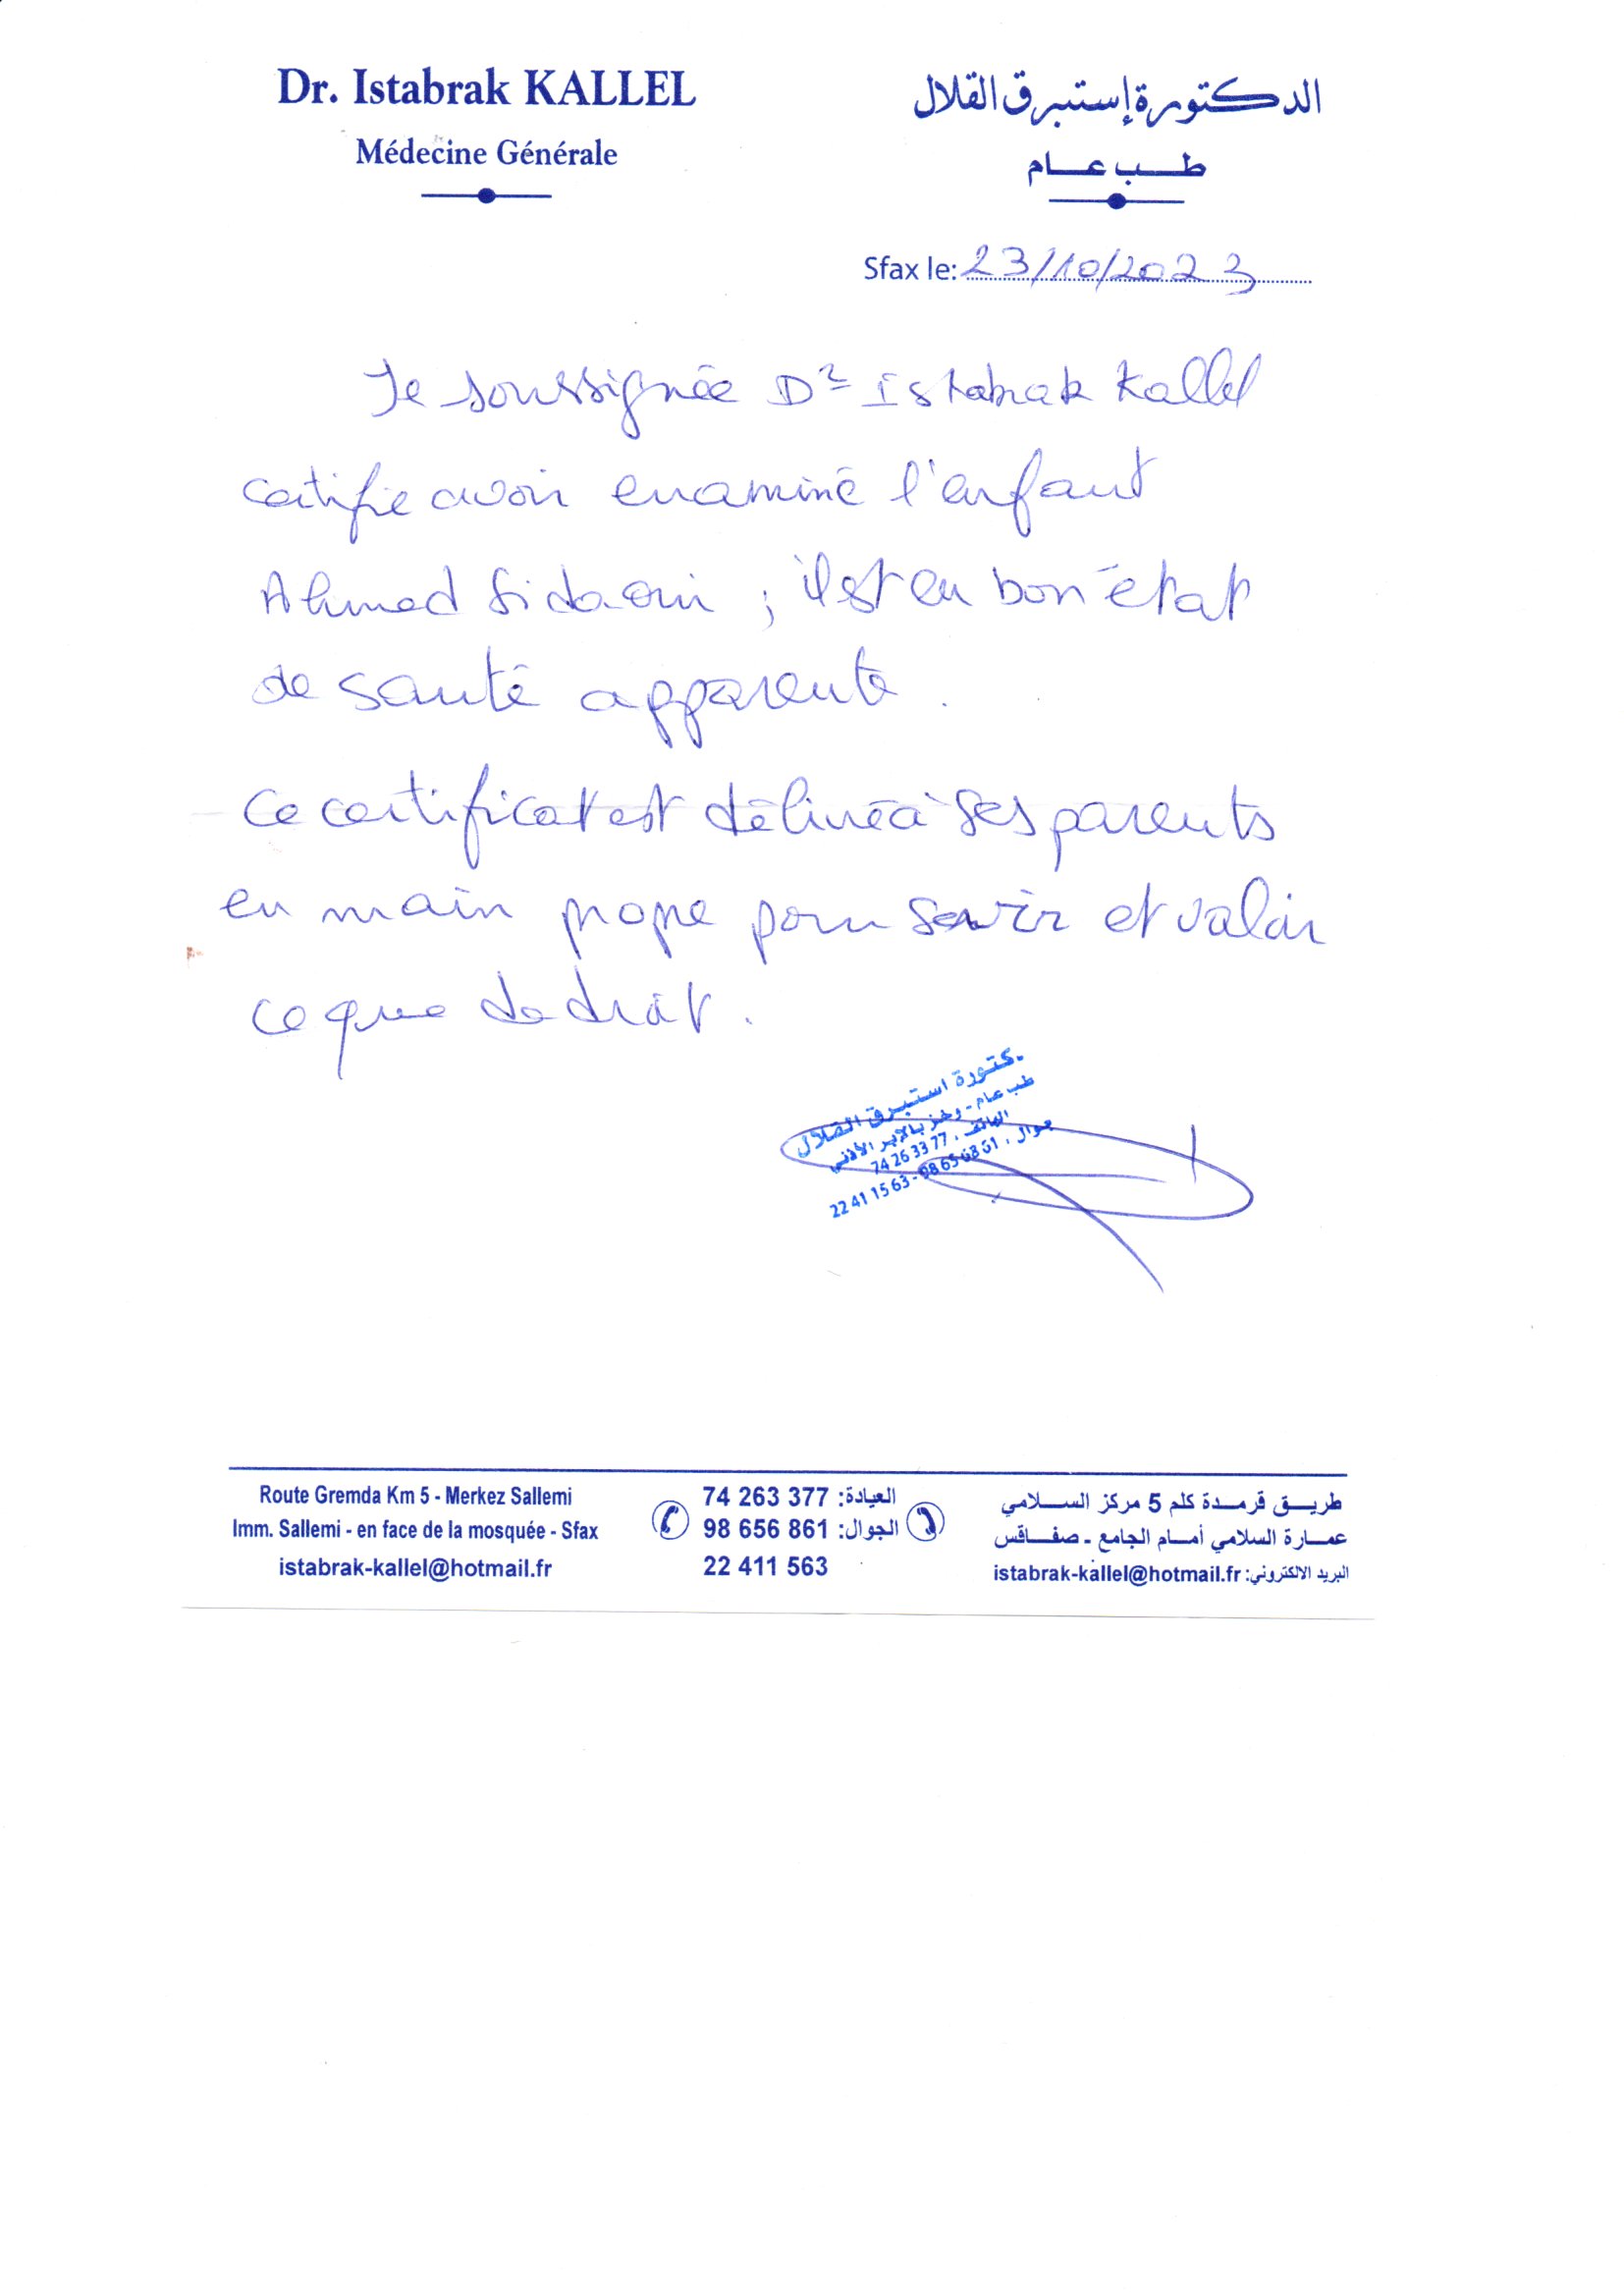 Dr. Istabrak KALLEL
Médecine Générale
الدكتورة إستبرق القلال
طب عام
Sfax le: 23/10/2023
Je soussignée Dr Istabrak Kallel
certifie avoir examiné l'enfant
Ahmed Sidaoui ; il est en bon état
de santé apparente.
Ce certificat est délivré à ses parents
en main propre pour servir et valoir
ce que de droit.
كتورة استبرق القلال
طب عام - وخز بالإبر الأذني
الهاتف : 74 26 33 77
جوال : 98 65 68 61 - 22 41 15 63
Route Gremda Km 5 - Merkez Sallemi
Imm. Sallemi - en face de la mosquée - Sfax
istabrak-kallel@hotmail.fr
العيادة: 74 263 377
الجوال: 98 656 861
22 411 563
طريق قرمدة كلم 5 مركز السلامي
عمارة السلامي أمام الجامع - صفاقس
البريد الالكتروني: istabrak-kallel@hotmail.fr